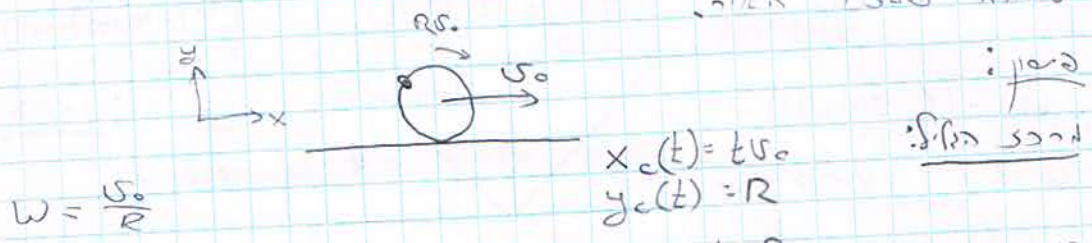 Rv₀
v₀
y
x
פתרון:
מרכז הגליל:
x_c(t) = tv₀
y_c(t) = R
ω = v₀/R